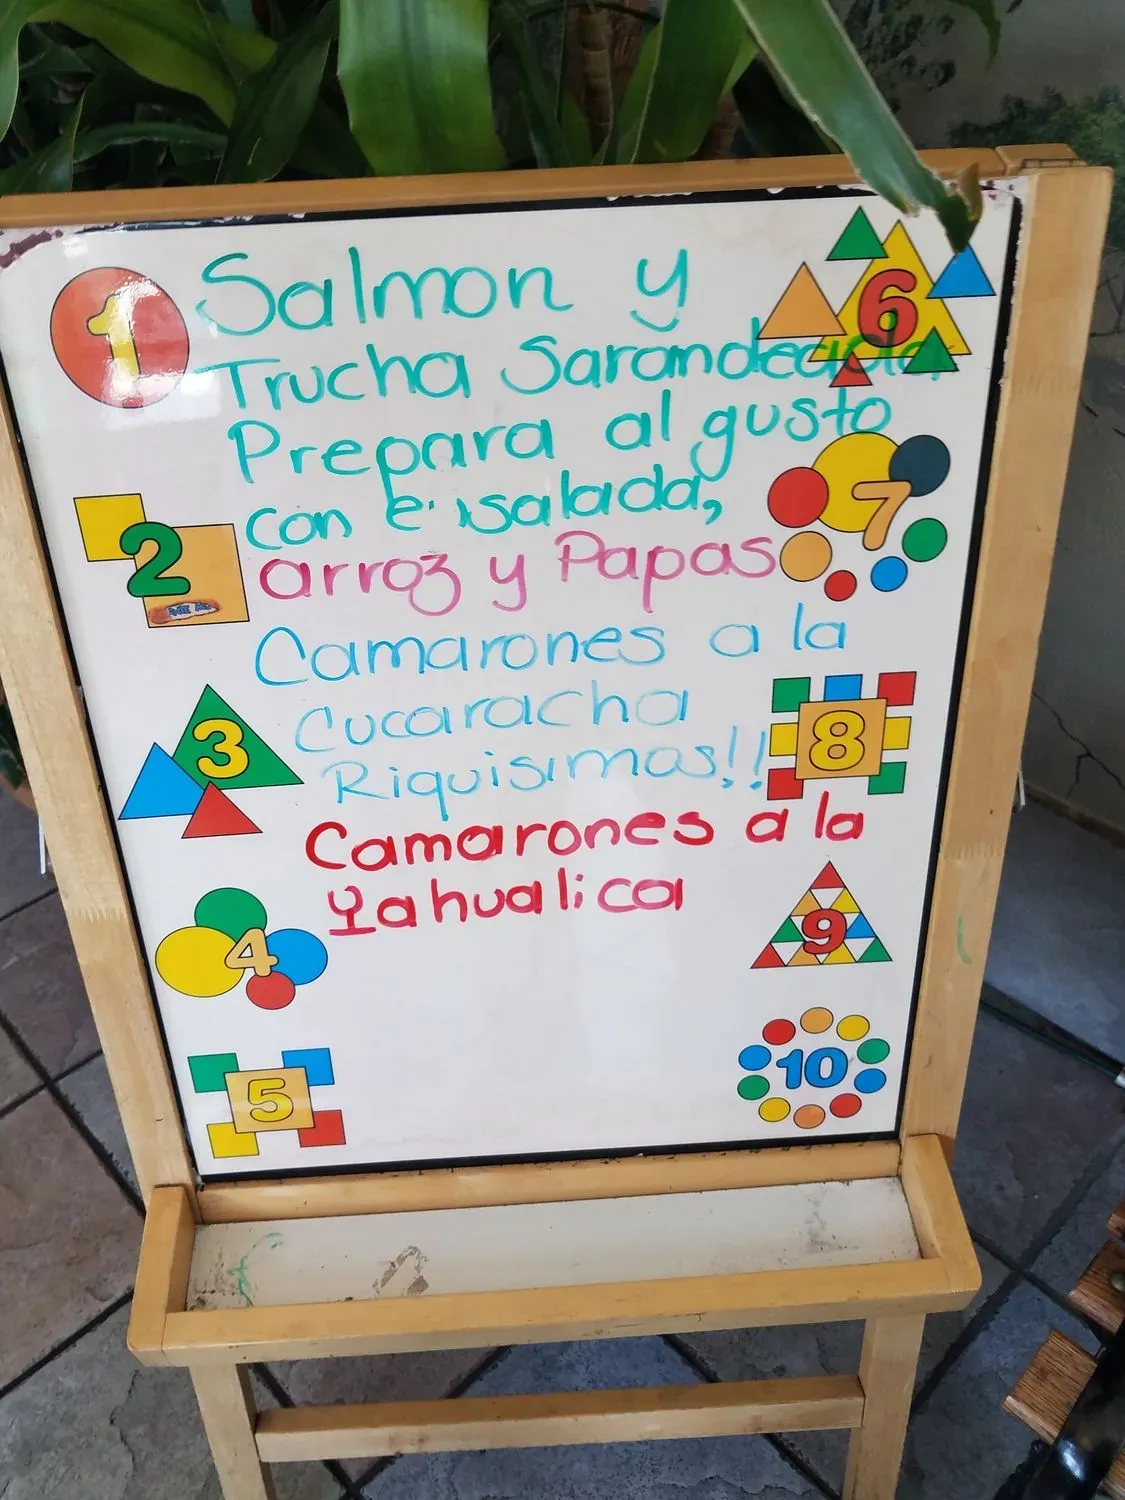 1
Salmon y
6
Trucha Sarandeada,
Prepara al gusto
con ensalada,
7
2
arroz y Papas
Camarones a la
3
Cucaracha
8
Riquisimos!!
Camarones a la
Yahualica
9
4
5
10